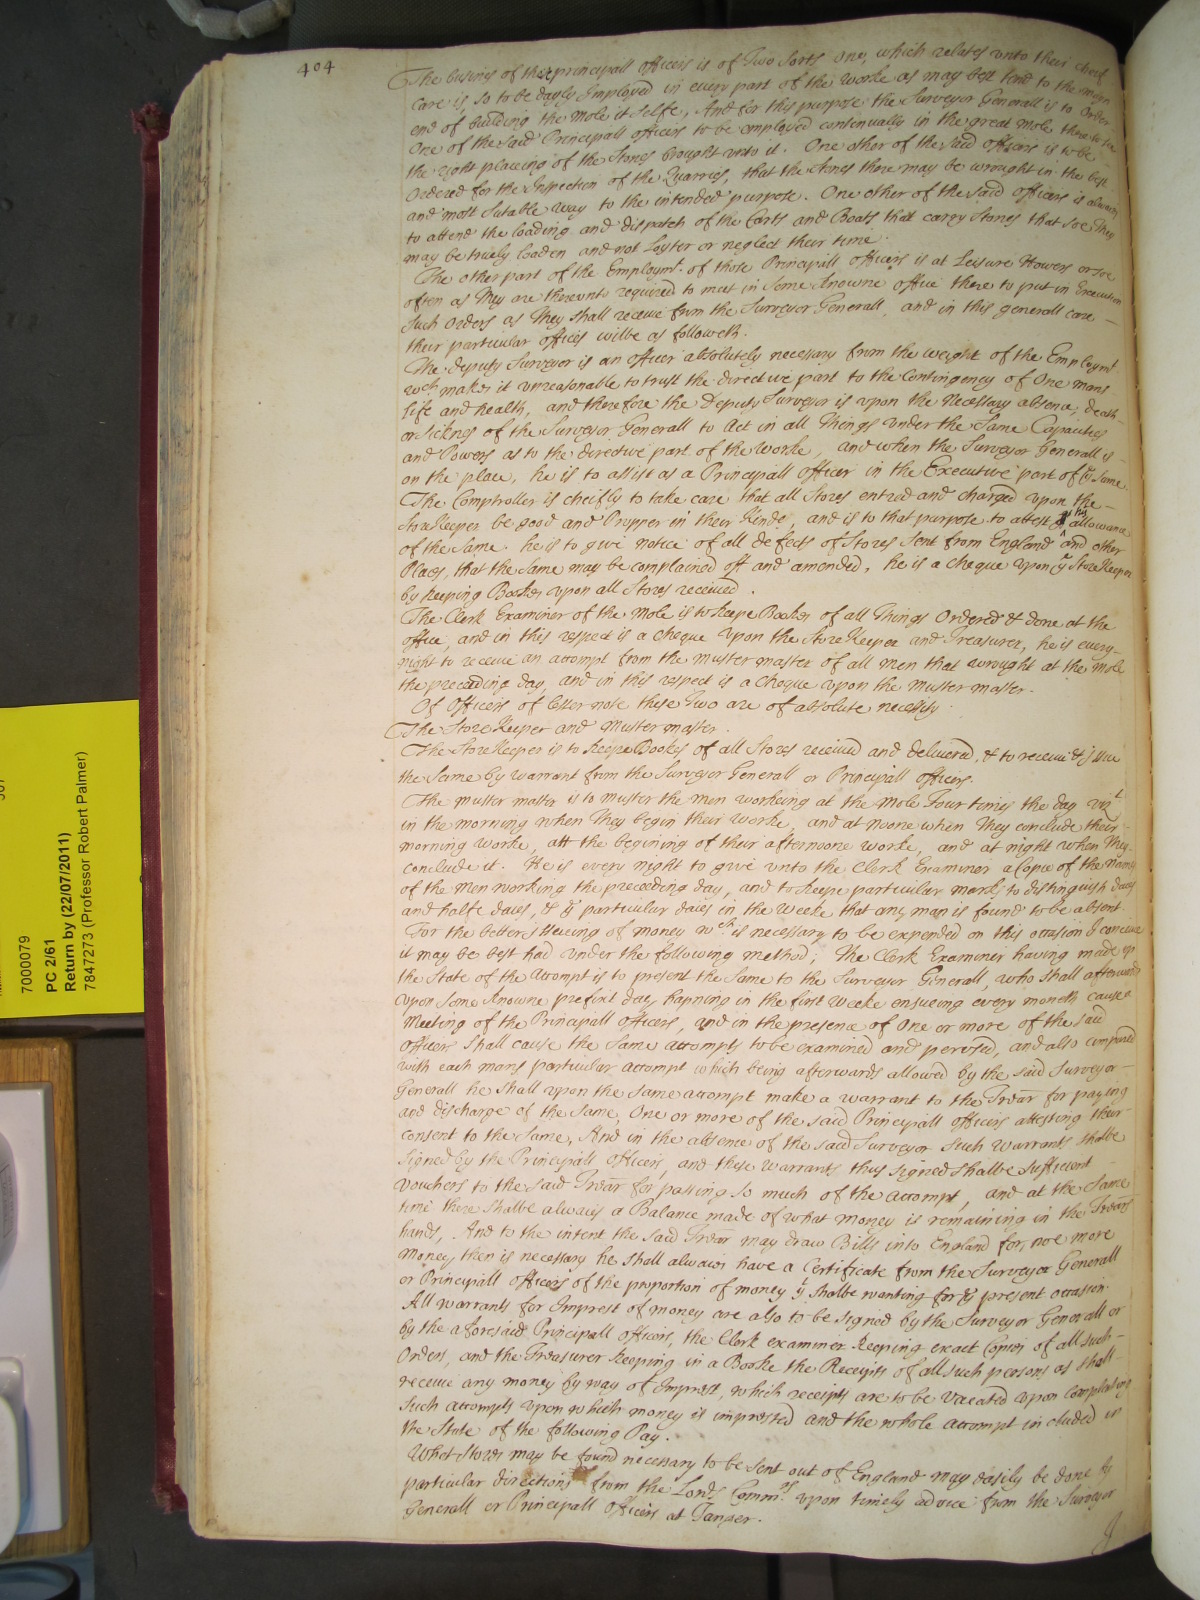 404
The busines of these principall officers is of Two Sorts one, which relates vnto their cheif
care is, so to be dayly Employed in every part of the worke as may best tend to the mayn
end of building the Mole it selfe, And for this purpose the Surveyor Generall is to Order
One of the said Principall officers to be employed continually in the great Mole there to see
the right placing of the Stones brought vnto it. One other of the said officers is to be
Ordered for the Inspection of the Quarries, that the stones there may be wrought in the best
and most sutable way to the intended purpose. One other of the said officers is alwaies
to attend the loading and dispatch of the Carts and Boats that carry Stones that soe They
may be truely loaden and not Loyter or neglect their time.
The other part of the Employmt. of those Principall officers is at Leisure Howers or soe
often as They are therevnto required to meet in some knowne office there to put in Execution
such Orders as They shall receive from the Surveyor Generall, and in this generall care
their particular offices wilbe as followeth.
The deputy Surveyor is an officer absolutely necessary from the weight of the Employmt
wch makes it vnreasonable to trust the directive part to the Contingency of One mans
life and health, and therefore the Deputy Surveyor is vpon the Necessary absence, death
or Sicknes of the Surveyor Generall to Act in all Things vnder the Same Capacities
and Powers as to the directive part of the Worke, and when the Surveyor Generall is
on the place, he is to assist as a Principall officer in the Executive part of ye same
The Comptroller is cheifly to take care that all Stores entred and charged vpon the
Store Keeper be good and Propper in their Kinde, and is to that purpose to attest his allowance
of the Same. he is to give notice of all defects of Stores Sent from England and other
Places, that the Same may be complained off and amended, he is a cheque vpon ye Store Keeper
by keeping Bookes vpon all Stores received.
The Clerk Examiner of the Mole is to keepe Bookes of all Things Ordered & done at the
office, and in this respect is a cheque vpon the Store Keeper and Treasurer, he is every
night to receive an accompt from the Muster master of all men that wrought at the mole
the preceeding day, and in this respect is a cheque vpon the Muster master.
Of Officers of lesser note these Two are of absolute necessity.
The Store Keeper and Muster master.
The Store Keeper is to Keepe Bookes of all Stores received and delivered, & to receive & issue
the Same by warrant from the Surveyor Generall or Principall officers.
The muster master is to muster the men workeing at the Mole Four times the day vizt
in the morning when They begin their worke, and at noone when They conclude their
morning worke, att the begining of their afternoone worke, and at night when They
conclude it. He is every night to give vnto the Clerk Examiner a Copie of the names
of the men working the preceeding day, and to keepe particular marks to distinguish daies
and halfe daies, & ye particular daies in the weeke that any man is found to be absent
For the better Issueing of money wch. is necessary to be expended on this occasion I conceive
it may be best had vnder the following method; The Clerk Examiner having made up
the State of the accompt is to present the Same to the Surveyor Generall, who shall afterwards
vpon some knowne prefixt day happning in the first weeke ensueing every moneth cause a
Meeting of the Principall officers, and in the presence of one or more of the said
officers shall cause the Same accompts to be examined and perused, and also compared
with each mans particular accompt which being afterwards allowed by the said Surveyor
Generall he shall vpon the same accompt make a warrant to the Trēar for paying
and discharge of the same, one or more of the said Principall officers attesting their
consent to the Same, And in the absence of the said Surveyor Such warrants shalbe
signed by the Principall officers, and these warrants thus signed shalbe sufficient
vouchers to the said Trēar for passing so much of the accompt, and at the same
time there shalbe alwaies a Balance made of what money is remaining in the Trēars
hands, And to the intent the said Trēar may draw Bills into England for noe more
Money then is necessary he shall alwaies have a Certificate from the Surveyor Generall
or Principall officers of the proportion of money yt shalbe wanting for ye present occasion
All warrants for Imprest of money are also to be signed by the Surveyor Generall or
by the aforesaid Principall officers, the Clerk examiner keeping exact Copies of all such
Orders, and the Treasurer keeping in a Booke the Receipts of all such persons as shall
receive any money by way of Imprest, which receipts are to be vacated vpon compleating
such accompts vpon which money is imprested and the whole accompt included in
the State of the following Pay.
What Stores may be found necessary to be sent out of England may easily be done by
particular directions from the Lords Commrs. vpon timely advice from the Surveyor
Generall or Principall officers at Tanger.
7000079
PC 2/61
Return by (22/07/2011)
7847273 (Professor Robert Palmer)